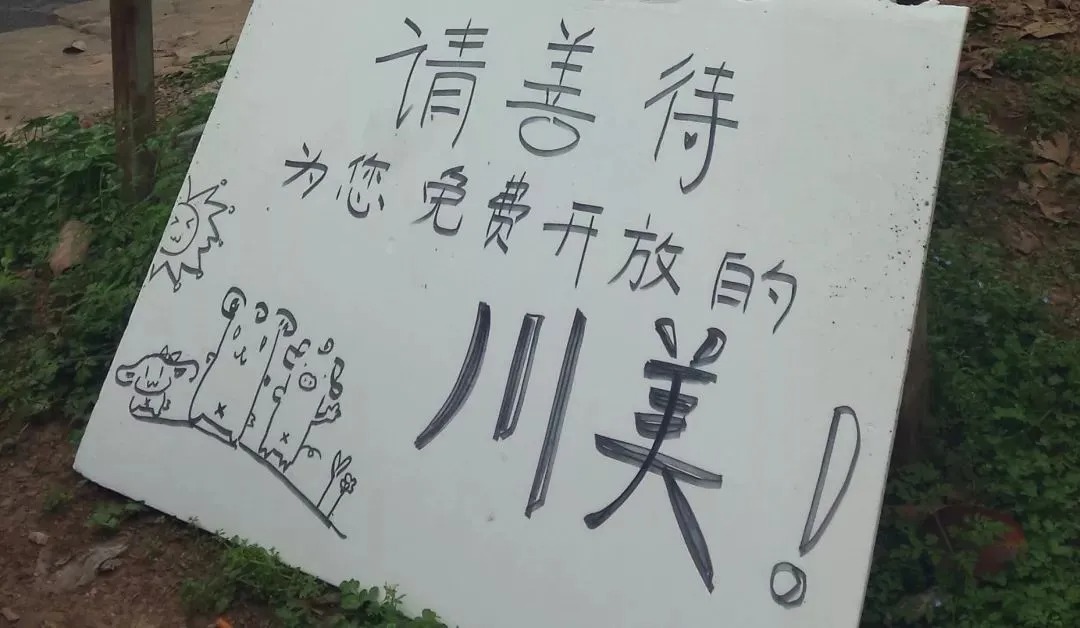 请善待
为您免费开放的
川美！